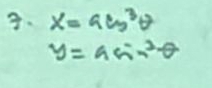 7. x = a cos³θ
y = a sin³θ